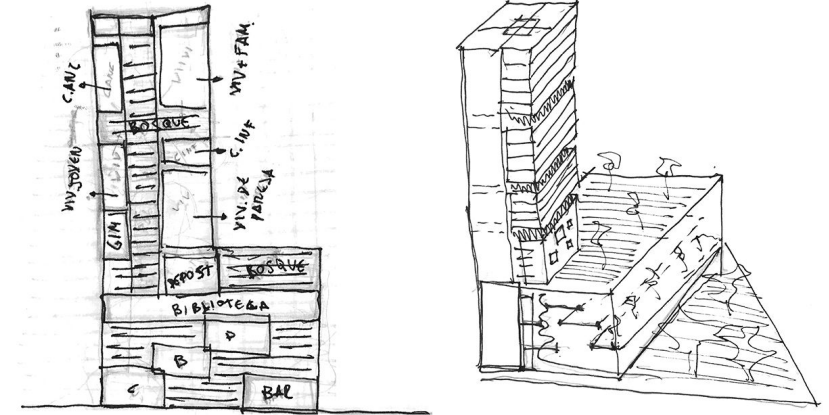 C. ANC
VIV + FAM.
BOSQUE
C. INF
VIV JOVEN
VIV. DE
PAREJA
GIM
BOSQUE
BIBLIOTECA
D
B
BAR